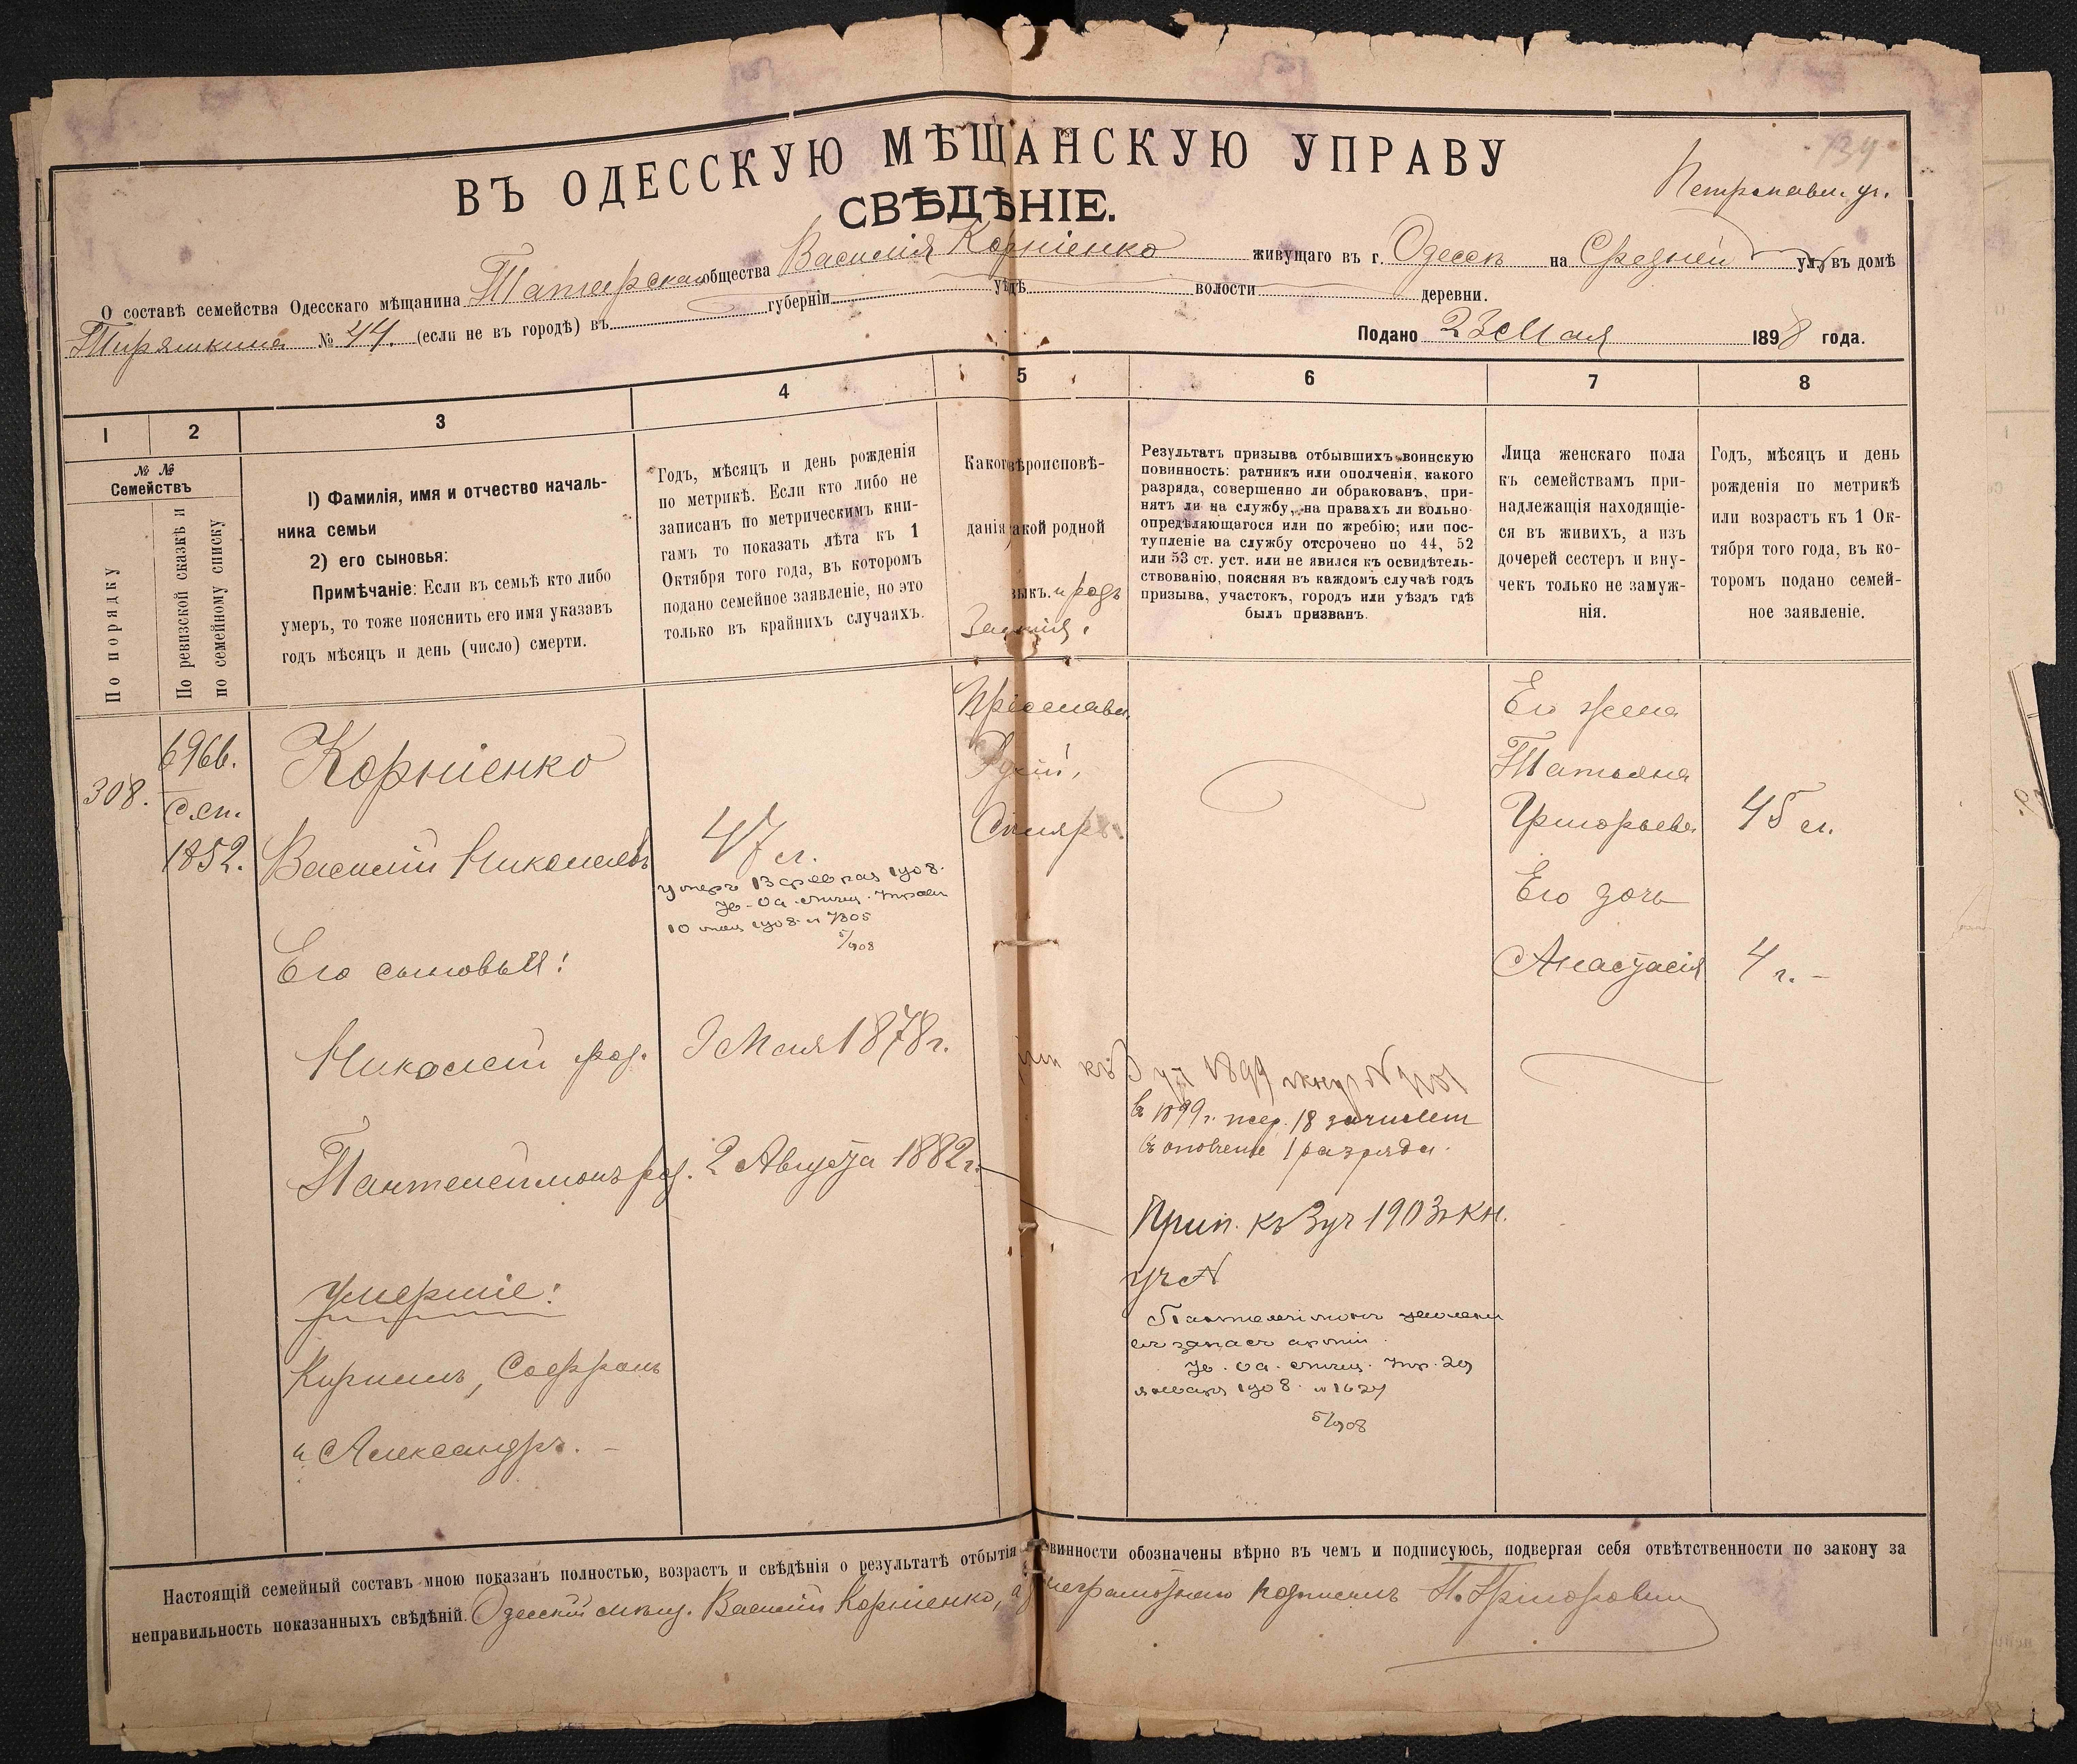 134
Петропавл. ул.
ВЪ ОДЕССКУЮ МѢЩАНСКУЮ УПРАВУ
СВѢДѢНІЕ.
О составѣ семейства Одесскаго мѣщанина Татарскаго общества Василія Корніенко живущаго въ г. Одессѣ на Средней ул. въ домѣ
Тиряткина № 44. (если не въ городѣ) въ губерніи уѣдѣ волости деревни.
Подано 23 Мая 1898 года.
1 2 3 4 5 6 7 8
№ №
Семействъ
По порядку
По ревизской сказкѣ и
по семейному списку
1) Фамилія, имя и отчество началь-
ника семьи
2) его сыновья:
Примѣчаніе: Если въ семьѣ кто либо
умеръ, то тоже пояснить его имя указавъ
годъ мѣсяцъ и день (число) смерти.
Годъ, мѣсяцъ и день рожденія
по метрикѣ. Если кто либо не
записанъ по метрическимъ кни-
гамъ то показать лѣта къ 1
Октября того года, въ которомъ
подано семейное заявленіе, но это
только въ крайнихъ случаяхъ.
Какого вѣроисповѣ-
данія какой родной
языкъ. и родъ
Занятія.
Результатъ призыва отбывшихъ воинскую
повинность: ратникъ или ополченія, какого
разряда, совершенно ли обракованъ, при-
нятъ ли на службу, на правахъ ли вольно-
опредѣляющагося или по жребію; или пос-
тупленіе на службу отсрочено по 44, 52
или 53 ст. уст. или не явился къ освидѣтель-
ствованію, поясняя въ каждомъ случаѣ годъ
призыва, участокъ, городъ или уѣздъ гдѣ
былъ призванъ.
Лица женскаго пола
къ семействамъ при-
надлежащія находящіе-
ся въ живихъ, а изъ
дочерей сестеръ и вну-
чекъ только не замуж-
нія.
Годъ, мѣсяцъ и день
рожденія по метрикѣ
или возрастъ къ 1 Ок-
тября того года, въ ко-
торомъ подано семей-
ное заявленіе.
308.
696б.
с.сп.
1852.
Корніенко
Василій Николаевъ
47 л.
умеръ 13 февраля 1908.
ув. Од. мѣщ. Управы
10 1908 № 7305
5/908
Его сыновья:
Николай род. 9 Мая 1878 г.
Пантелеймонъ род. 2 Августа 1882 г.
Умершіе:
Кириллъ, Софронъ
и Александръ. –
Православн.
Рускій,
Столяръ.
къ 3 уч 1899
в 1899 г. жер. 18 зачислен
в ополчение 1 разряда.
Прип. къ 3 уч 1903 г. кн.
уч №
Пантелеімонъ уволенъ
въ запасъ арміи
ув. Од. мѣщ. Упр. 29
января 1908. № 1627
5/908
Его жена
Татьяна
Григорьева 45 л.
Его дочь
Анастасія 4 г. –
Настоящій семейный составъ мною показанъ полностью, возрастъ и свѣдѣнія о результатѣ отбытія повинности обозначены вѣрно въ чемъ и подписуюсь, подвергая себя отвѣтственности по закону за
неправильность показанныхъ свѣдѣній. Одесскій мѣщ. Василій Корніенко, а за неграмотнаго подписалъ П. Григоровичъ